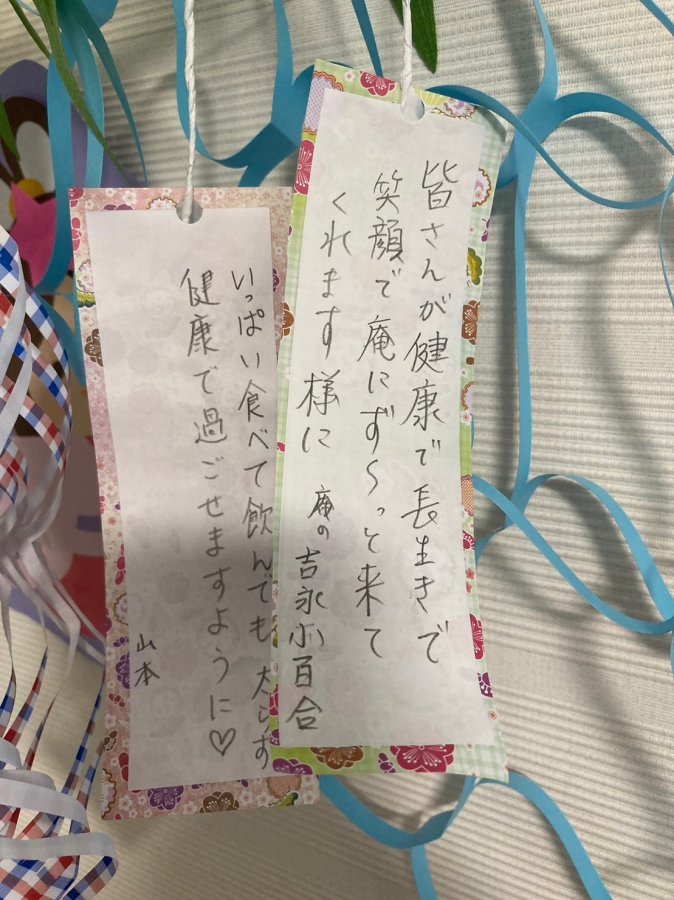 皆さんが健康で長生きで
笑顔で庵にずぅっと来て
くれます様に
庵の吉永小百合
いっぱい食べて飲んでも太らず
健康で過ごせますように♡
山本